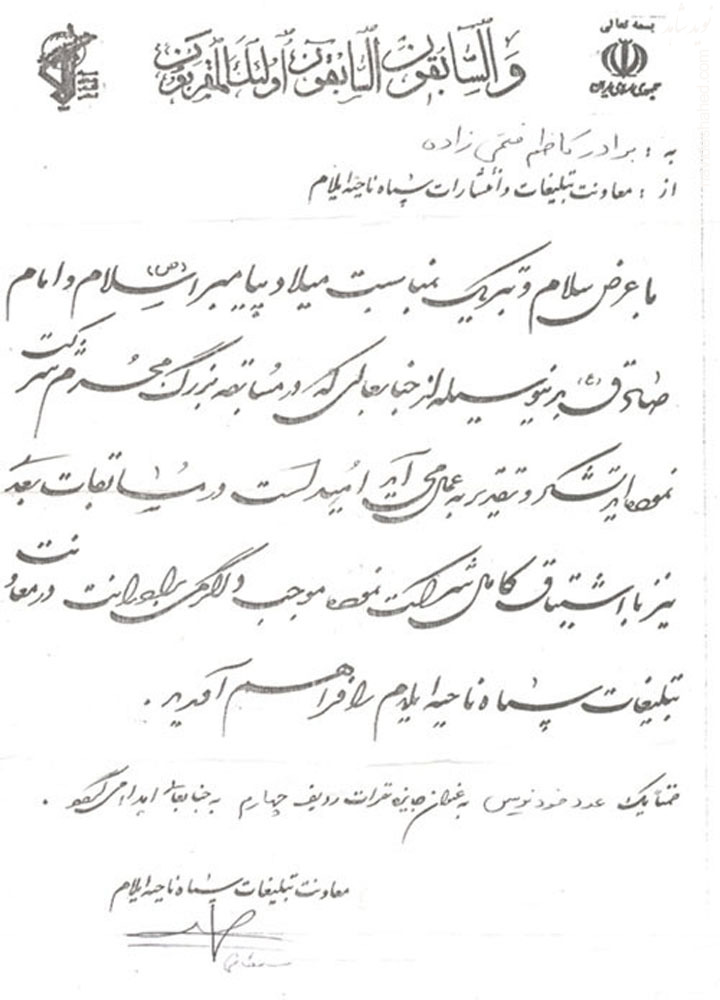 بسمه تعالی
جمهوری اسلامی ایران
وَالسَّابِقُونَ السَّابِقُونَ أُولَئِكَ الْمُقَرَّبُونَ
به : برادر کاظم فتحی زاده
از : معاونت تبلیغات و انتشارات سپاه ناحیه ایلام
با عرض سلام و تبریک بمناسبت میلاد پیامبر اسلام (ص) و امام
صادق (ع) بدینوسیله از جنابعالی که در مسابقه بزرگ محرم شرکت
نموده اید تشکر و تقدیر به عمل می آید امید است در مسابقات بعدی
نیز با اشتیاق کامل شرکت نموده موجب دلگرمی برادرانت در معاونت
تبلیغات سپاه ناحیه ایلام را فراهم آورید .
ضمناً یک عدد خودنویس به عنوان جایزه نفرات ردیف چهارم به جنابعالی اهداء می گردد .
معاونت تبلیغات سپاه ناحیه ایلام